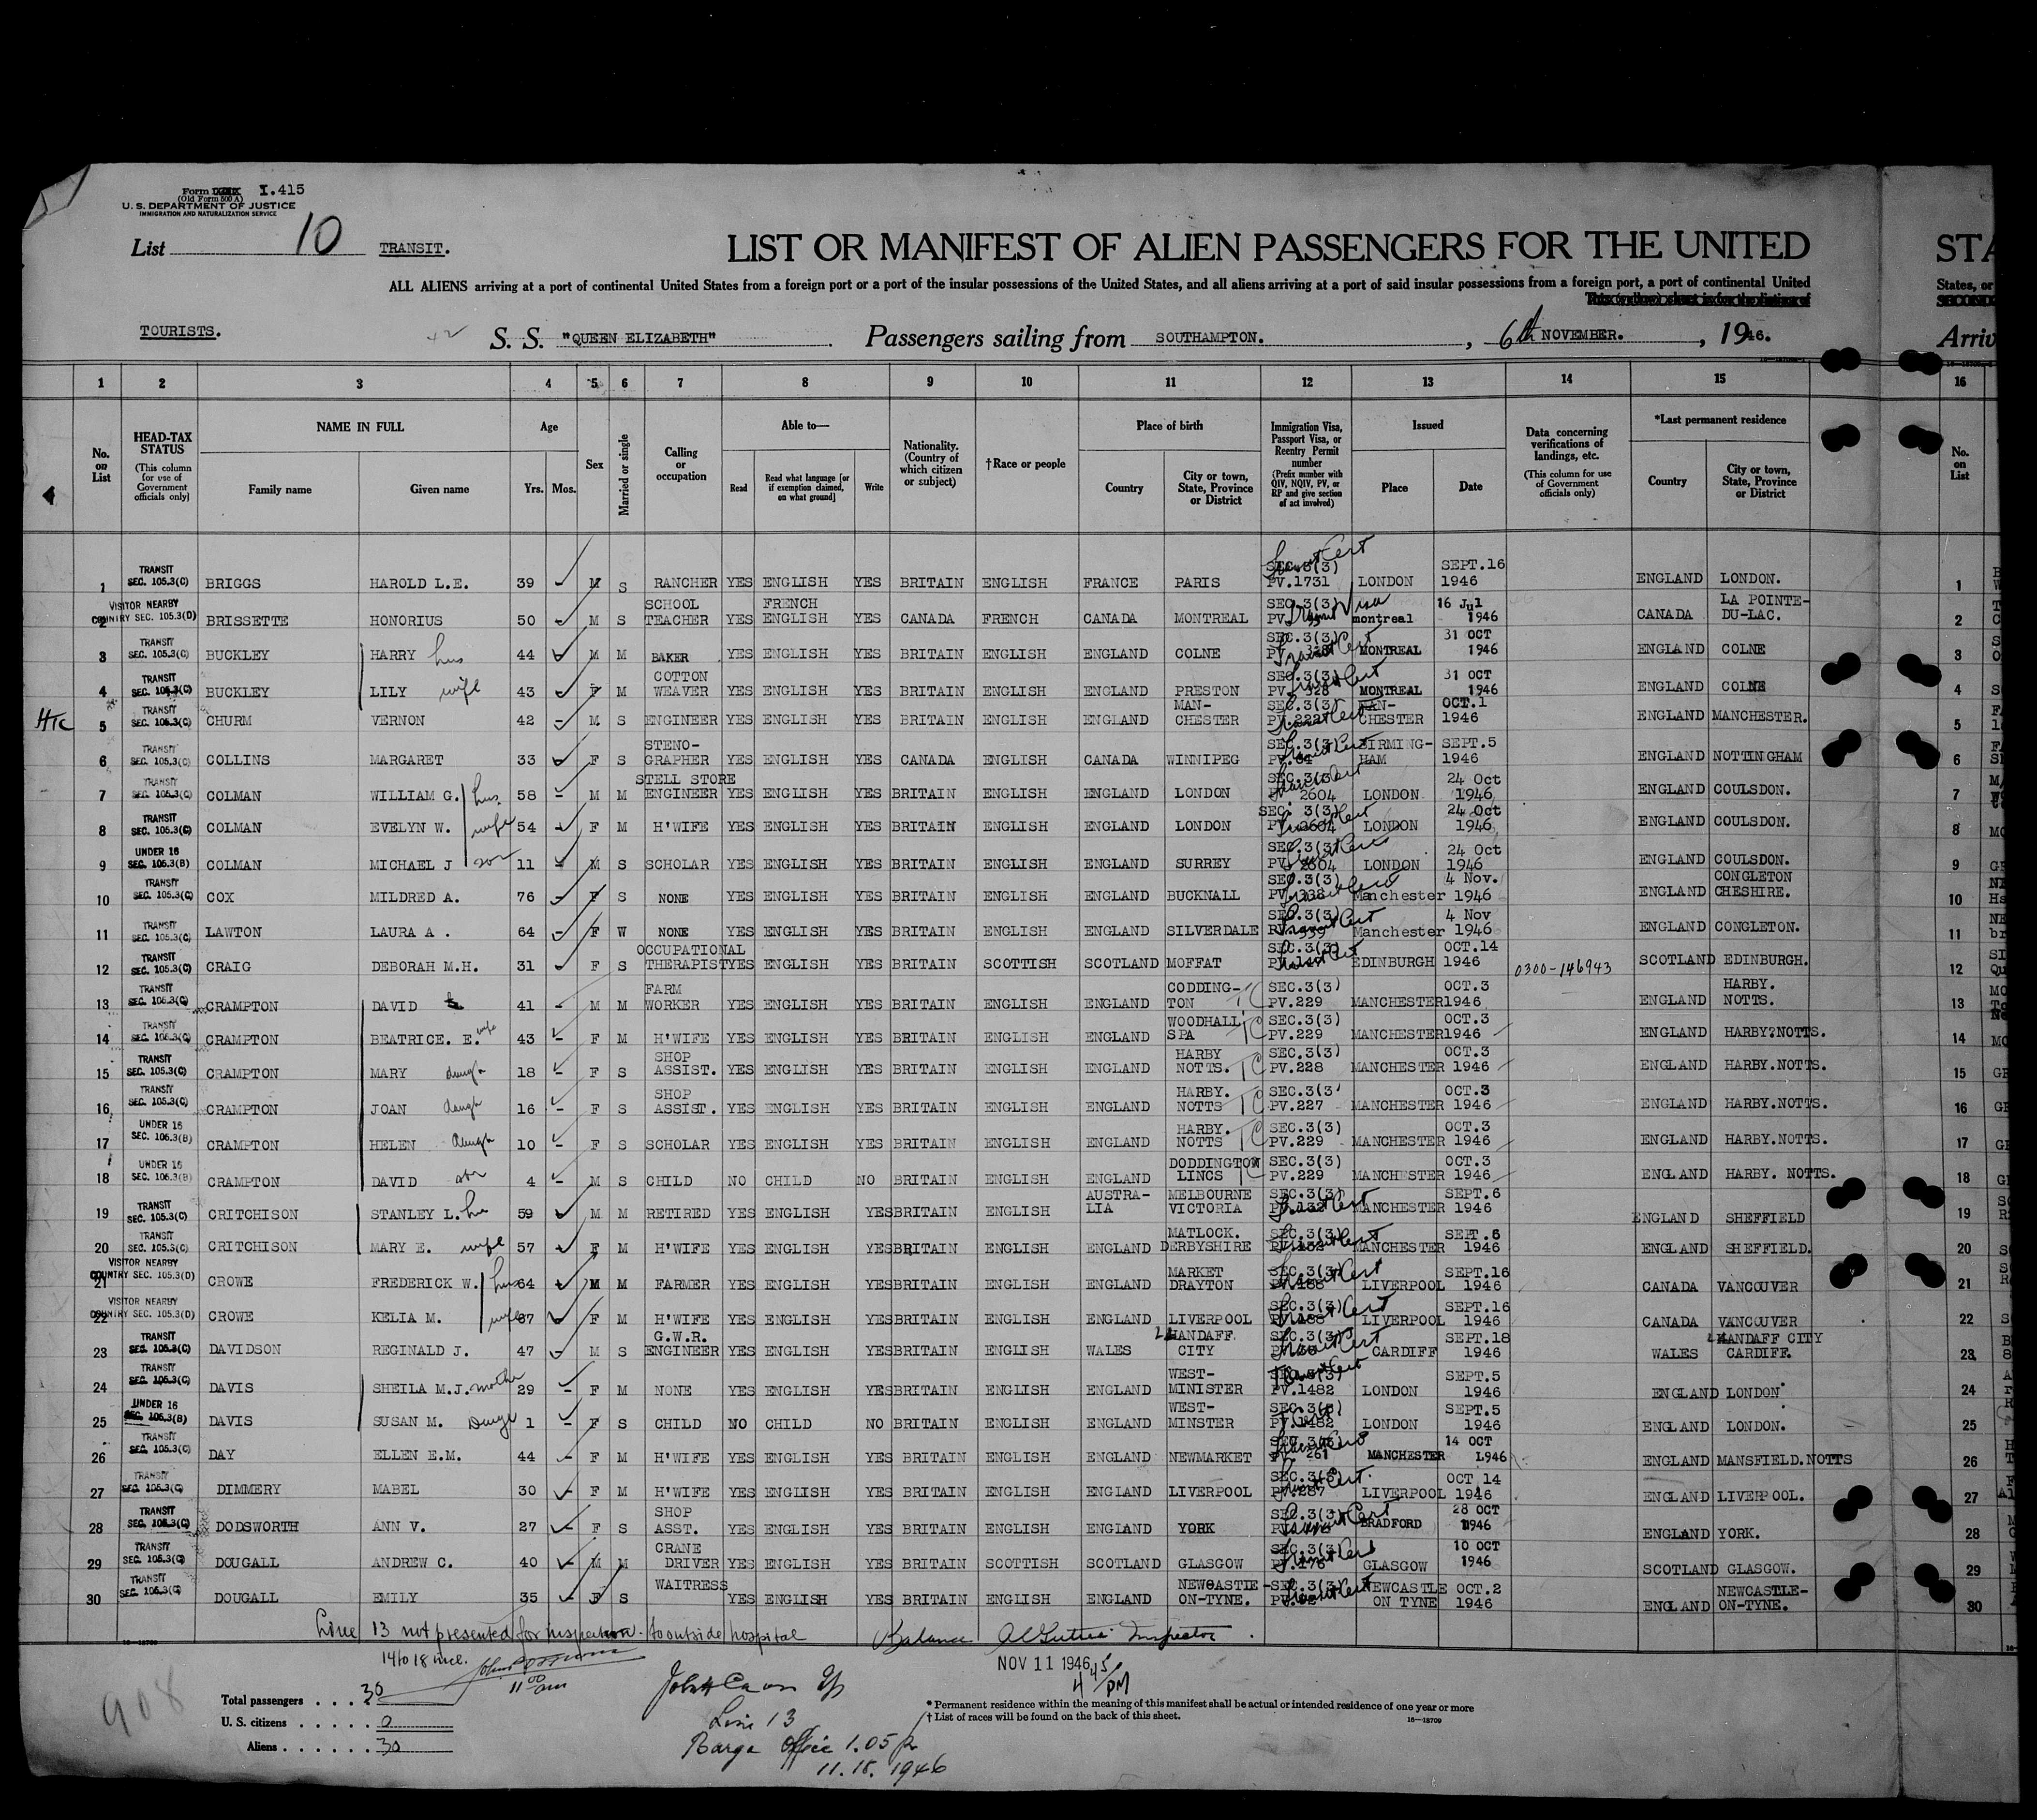 Form I.415
(Old Form 500 A)
U. S. DEPARTMENT OF JUSTICE
IMMIGRATION AND NATURALIZATION SERVICE
List 10 TRANSIT.
LIST OR MANIFEST OF ALIEN PASSENGERS FOR THE UNITED STA
ALL ALIENS arriving at a port of continental United States from a foreign port or a port of the insular possessions of the United States, and all aliens arriving at a port of said insular possessions from a foreign port, a port of continental United States, or
TOURISTS. S. S. "QUEEN ELIZABETH" Passengers sailing from SOUTHAMPTON. , 6th NOVEMBER. , 1946. Arriv
1 2 3 4 5 6 7 8 9 10 11 12 13 14 15 16
No. on List
HEAD-TAX STATUS (This column for use of Government officials only)
NAME IN FULL Family name Given name
Age Yrs. Mos.
Sex
Married or single
Calling or occupation
Able to— Read Read what language [or if exemption claimed, on what ground] Write
Nationality. (Country of which citizen or subject)
†Race or people
Place of birth Country City or town, State, Province or District
Immigration Visa, Passport Visa, or Reentry Permit number (Prefix number with QIV, NQIV, PV, or RP and give section of act involved)
Issued Place Date
Data concerning verifications of landings, etc. (This column for use of Government officials only)
*Last permanent residence Country City or town, State, Province or District
No. on List
1 TRANSIT SEC. 105.3(C) BRIGGS HAROLD L.E. 39 M S RANCHER YES ENGLISH YES BRITAIN ENGLISH FRANCE PARIS SEC.3(3) PV.1731 LONDON SEPT.16 1946 ENGLAND LONDON. 1
2 VISITOR NEARBY COUNTRY SEC. 105.3(D) BRISSETTE HONORIUS 50 M S SCHOOL TEACHER YES FRENCH ENGLISH YES CANADA FRENCH CANADA MONTREAL SEC.3(3) PV. montreal 16 Jul 1946 CANADA LA POINTE-DU-LAC. 2
3 TRANSIT SEC. 105.3(C) BUCKLEY HARRY hus 44 M M BAKER YES ENGLISH YES BRITAIN ENGLISH ENGLAND COLNE SEC.3(3) MONTREAL 31 OCT 1946 ENGLAND COLNE 3
4 TRANSIT SEC. 105.3(C) BUCKLEY LILY wife 43 F M COTTON WEAVER YES ENGLISH YES BRITAIN ENGLISH ENGLAND PRESTON SEC.3(3) PV. 328 MONTREAL 31 OCT 1946 ENGLAND COLNE 4
HTC 5 TRANSIT SEC. 105.3(C) CHURM VERNON 42 M S ENGINEER YES ENGLISH YES BRITAIN ENGLISH ENGLAND MAN-CHESTER SEC.3(3) MAN-CHESTER OCT.1 1946 ENGLAND MANCHESTER. 5
6 TRANSIT SEC. 105.3(C) COLLINS MARGARET 33 F S STENO-GRAPHER YES ENGLISH YES CANADA ENGLISH CANADA WINNIPEG SEC.3(3) BIRMING-HAM SEPT.5 1946 ENGLAND NOTTINGHAM 6
7 TRANSIT SEC. 105.3(C) COLMAN WILLIAM G. hus. 58 M M STELL STORE ENGINEER YES ENGLISH YES BRITAIN ENGLISH ENGLAND LONDON SEC.3(3) 2604 LONDON 24 Oct 1946 ENGLAND COULSDON. 7
8 TRANSIT SEC. 105.3(C) COLMAN EVELYN W. wife 54 F M H'WIFE YES ENGLISH YES BRITAIN ENGLISH ENGLAND LONDON SEC. 3(3) PV. 2604 LONDON 24 Oct 1946 ENGLAND COULSDON. 8
9 UNDER 16 SEC. 105.3(B) COLMAN MICHAEL J son 11 M S SCHOLAR YES ENGLISH YES BRITAIN ENGLISH ENGLAND SURREY SEC.3(3) PV. 2604 LONDON 24 Oct 1946 ENGLAND COULSDON. 9
10 TRANSIT SEC. 105.3(C) COX MILDRED A. 76 F S NONE YES ENGLISH YES BRITAIN ENGLISH ENGLAND BUCKNALL SEC.3(3) Manchester 4 Nov. 1946 ENGLAND CONGLETON CHESHIRE. 10
11 TRANSIT SEC. 105.3(C) LAWTON LAURA A . 64 F W NONE YES ENGLISH YES BRITAIN ENGLISH ENGLAND SILVERDALE SEC.3(3) Manchester 4 Nov 1946 ENGLAND CONGLETON. 11
12 TRANSIT SEC. 105.3(C) CRAIG DEBORAH M.H. 31 F S OCCUPATIONAL THERAPIST YES ENGLISH YES BRITAIN SCOTTISH SCOTLAND MOFFAT SEC.3(3) EDINBURGH OCT.14 1946 0300-146943 SCOTLAND EDINBURGH. 12
13 TRANSIT SEC. 105.3(C) CRAMPTON DAVID 41 M M FARM WORKER YES ENGLISH YES BRITAIN ENGLISH ENGLAND CODDING-TON TC SEC.3(3) PV.229 MANCHESTER OCT.3 1946 ENGLAND HARBY. NOTTS. 13
14 TRANSIT SEC. 105.3(C) CRAMPTON BEATRICE. E. wife 43 F M H'WIFE YES ENGLISH YES BRITAIN ENGLISH ENGLAND WOODHALL SPA TC SEC.3(3) PV.229 MANCHESTER OCT.3 1946 ENGLAND HARBY.NOTTS. 14
15 TRANSIT SEC. 105.3(C) CRAMPTON MARY daugh 18 F S SHOP ASSIST. YES ENGLISH YES BRITAIN ENGLISH ENGLAND HARBY NOTTS. TC SEC.3(3) PV.228 MANCHESTER OCT.3 1946 ENGLAND HARBY.NOTTS. 15
16 TRANSIT SEC. 105.3(C) CRAMPTON JOAN daugh 16 F S SHOP ASSIST. YES ENGLISH YES BRITAIN ENGLISH ENGLAND HARBY. NOTTS TC SEC.3(3) PV.227 MANCHESTER OCT.3 1946 ENGLAND HARBY.NOTTS. 16
17 UNDER 16 SEC. 105.3(B) CRAMPTON HELEN daugh 10 F S SCHOLAR YES ENGLISH YES BRITAIN ENGLISH ENGLAND HARBY. NOTTS TC SEC.3(3) PV.229 MANCHESTER OCT.3 1946 ENGLAND HARBY.NOTTS. 17
18 UNDER 16 SEC. 105.3(B) CRAMPTON DAVID son 4 M S CHILD NO CHILD NO BRITAIN ENGLISH ENGLAND DODDINGTON LINCS TC SEC.3(3) PV.229 MANCHESTER OCT.3 1946 ENGLAND HARBY. NOTTS. 18
19 TRANSIT SEC. 105.3(C) CRITCHISON STANLEY L. hus 59 M M RETIRED YES ENGLISH YES BRITAIN ENGLISH AUSTRA-LIA MELBOURNE VICTORIA SEC.3(3) MANCHESTER SEPT.6 1946 ENGLAND SHEFFIELD 19
20 TRANSIT SEC. 105.3(C) CRITCHISON MARY E. wife 57 F M H'WIFE YES ENGLISH YES BRITAIN ENGLISH ENGLAND MATLOCK. DERBYSHIRE SEC.3(3) MANCHESTER SEPT.6 1946 ENGLAND SHEFFIELD. 20
21 VISITOR NEARBY COUNTRY SEC. 105.3(D) CROWE FREDERICK W. hus 64 M M FARMER YES ENGLISH YES BRITAIN ENGLISH ENGLAND MARKET DRAYTON LIVERPOOL SEPT.16 1946 CANADA VANCOUVER 21
22 VISITOR NEARBY COUNTRY SEC. 105.3(D) CROWE KELIA M. wife 67 F M H'WIFE YES ENGLISH YES BRITAIN ENGLISH ENGLAND LIVERPOOL SEC.3(3) LIVERPOOL SEPT.16 1946 CANADA VANCOUVER 22
23 TRANSIT SEC. 105.3(C) DAVIDSON REGINALD J. 47 M S G.W.R. ENGINEER YES ENGLISH YES BRITAIN ENGLISH WALES LLANDAFF. CITY SEC.3(3) CARDIFF SEPT.18 1946 WALES LLANDAFF CITY CARDIFF. 23
24 TRANSIT SEC. 105.3(C) DAVIS SHEILA M.J. mother 29 F M NONE YES ENGLISH YES BRITAIN ENGLISH ENGLAND WEST-MINISTER PV.1482 LONDON SEPT.5 1946 ENGLAND LONDON 24
25 UNDER 16 SEC. 105.3(B) DAVIS SUSAN M. Daugh 1 F S CHILD NO CHILD NO BRITAIN ENGLISH ENGLAND WEST-MINSTER SEC.3(3) PV.1482 LONDON SEPT.5 1946 ENGLAND LONDON. 25
26 TRANSIT SEC. 105.3(C) DAY ELLEN E.M. 44 F M H'WIFE YES ENGLISH YES BRITAIN ENGLISH ENGLAND NEWMARKET 261 MANCHESTER 14 OCT 1946 ENGLAND MANSFIELD.NOTTS 26
27 TRANSIT SEC. 105.3(C) DIMMERY MABEL 30 F M H'WIFE YES ENGLISH YES BRITAIN ENGLISH ENGLAND LIVERPOOL SEC.3(3) LIVERPOOL OCT 14 1946 ENGLAND LIVERPOOL. 27
28 TRANSIT SEC. 105.3(C) DODSWORTH ANN V. 27 F S SHOP ASST. YES ENGLISH YES BRITAIN ENGLISH ENGLAND YORK BRADFORD 28 OCT 1946 ENGLAND YORK. 28
29 TRANSIT SEC. 105.3(C) DOUGALL ANDREW C. 40 M M CRANE DRIVER YES ENGLISH YES BRITAIN SCOTTISH SCOTLAND GLASGOW SEC.3(3) GLASGOW 10 OCT 1946 SCOTLAND GLASGOW. 29
30 TRANSIT SEC. 105.3(C) DOUGALL EMILY 35 F S WAITRESS YES ENGLISH YES BRITAIN ENGLISH ENGLAND NEWCASTLE-ON-TYNE. SEC.3(3) NEWCASTLE ON TYNE OCT.2 1946 ENGLAND NEWCASTLE-ON-TYNE. 30
Line 13 not presented for inspection. to outside hospital Balance Inspector
14 to 18 incl.
11 00 am
NOV 11 1946 4 45 PM
908
Total passengers . . . 30
U. S. citizens . . . . . 0
Aliens . . . . . . 30
Line 13
Barge Office 1.05 p
11.18. 1946
* Permanent residence within the meaning of this manifest shall be actual or intended residence of one year or more
† List of races will be found on the back of this sheet.
16—18709